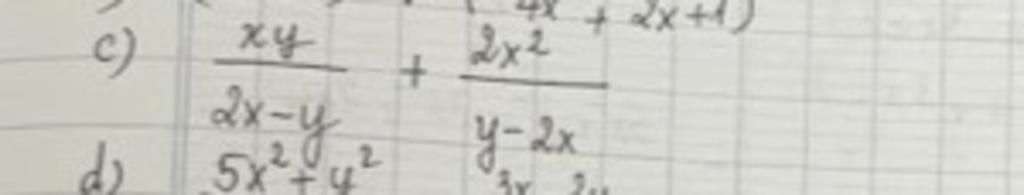 4x + 2x+1)
c) xy/(2x-y) + 2x²/(y-2x)
d) 5x²+y² 3x 2y